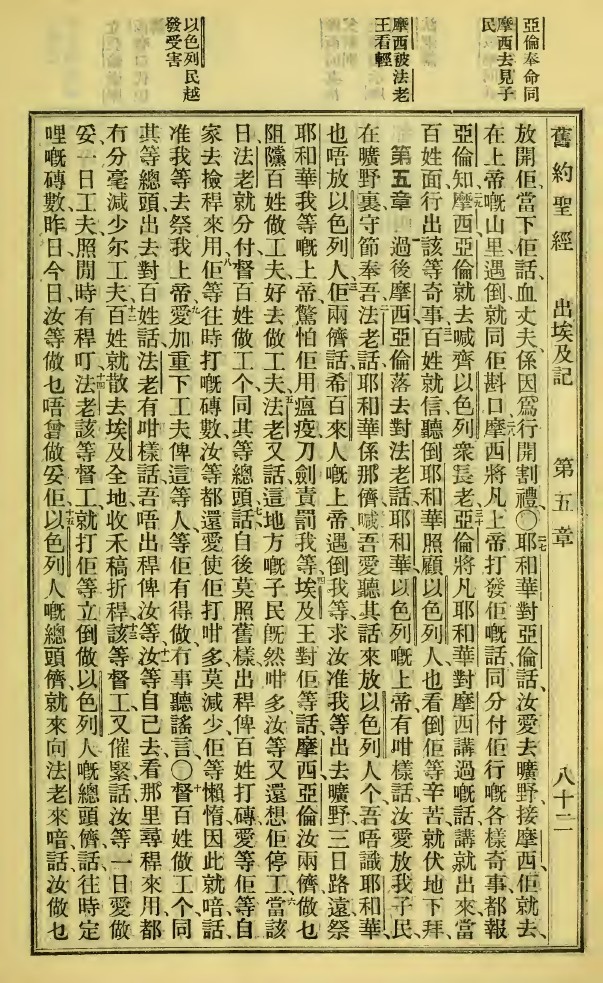 亞倫奉命同
摩西去見子
民
摩西被法老
王看輕
以色列民越
發受害
舊約聖經 出埃及記 第五章 八十二
放開佢、當下佢話、血丈夫、係因爲行開割禮、○二七耶和華對亞倫話、汝愛去曠野接摩西、佢就去、
在上帝嘅山里遇倒、就同佢斟口、二八摩西將凡上帝打發佢嘅話、同分付佢行嘅各樣奇事、都報
亞倫知、二九摩西亞倫就去喊齊以色列衆長老、三十亞倫將凡耶和華對摩西講過嘅話、講就出來、當
百姓面行出該等奇事、三一百姓就信、聽倒耶和華照顧以色列人、也看倒佢等辛苦、就伏地下拜、
第五章 一過後摩西亞倫落去對法老話、耶和華以色列嘅上帝、有咁樣話、汝愛放我子民、
在曠野裏守節奉吾、二法老話、耶和華係那儕、喊吾愛聽其話、來放以色列人个、吾唔識耶和華、
也唔放以色列人、三佢兩儕話、希百來人嘅上帝遇倒我等、求汝准我等出去曠野、三日路遠、祭
耶和華我等嘅上帝、驚怕佢用瘟疫刀劍責罰我等、四埃及王對佢等話、摩西亞倫、汝兩儕做乜
阻攩百姓做工夫、好去做工夫、五法老又話、這地方嘅子民旣然咁多、汝等又還想佢停工、六當該
日法老就分付督百姓做工个、同其等總頭話、七自後莫照舊樣出稈俾百姓打磚、愛等佢等自
家去撿稈來用、八佢等往時打嘅磚數、汝等都還愛使佢打咁多、莫減少、佢等懶惰、因此就喑話、
准我等去祭我上帝、九愛加重下工夫俾這等人、等佢有得做、冇事聽謠言、○十督百姓做工个、同
其等總頭出去對百姓話、法老有咁樣話、吾唔出稈俾汝等、十一汝等自己去看那里尋稈來用、都
冇分毫減少尔工夫、十二百姓就散去埃及全地、收禾稿折稈、十三該等督工又催緊話、汝等一日愛做
妥一日工夫、照閒時有稈叮、十四法老該等督工、就打佢等立倒做以色列人嘅總頭儕、話、往時定
哩嘅磚數、昨日今日汝等做乜唔曾做妥佢、十五以色列人嘅總頭儕、就來向法老來喑話、汝做乜